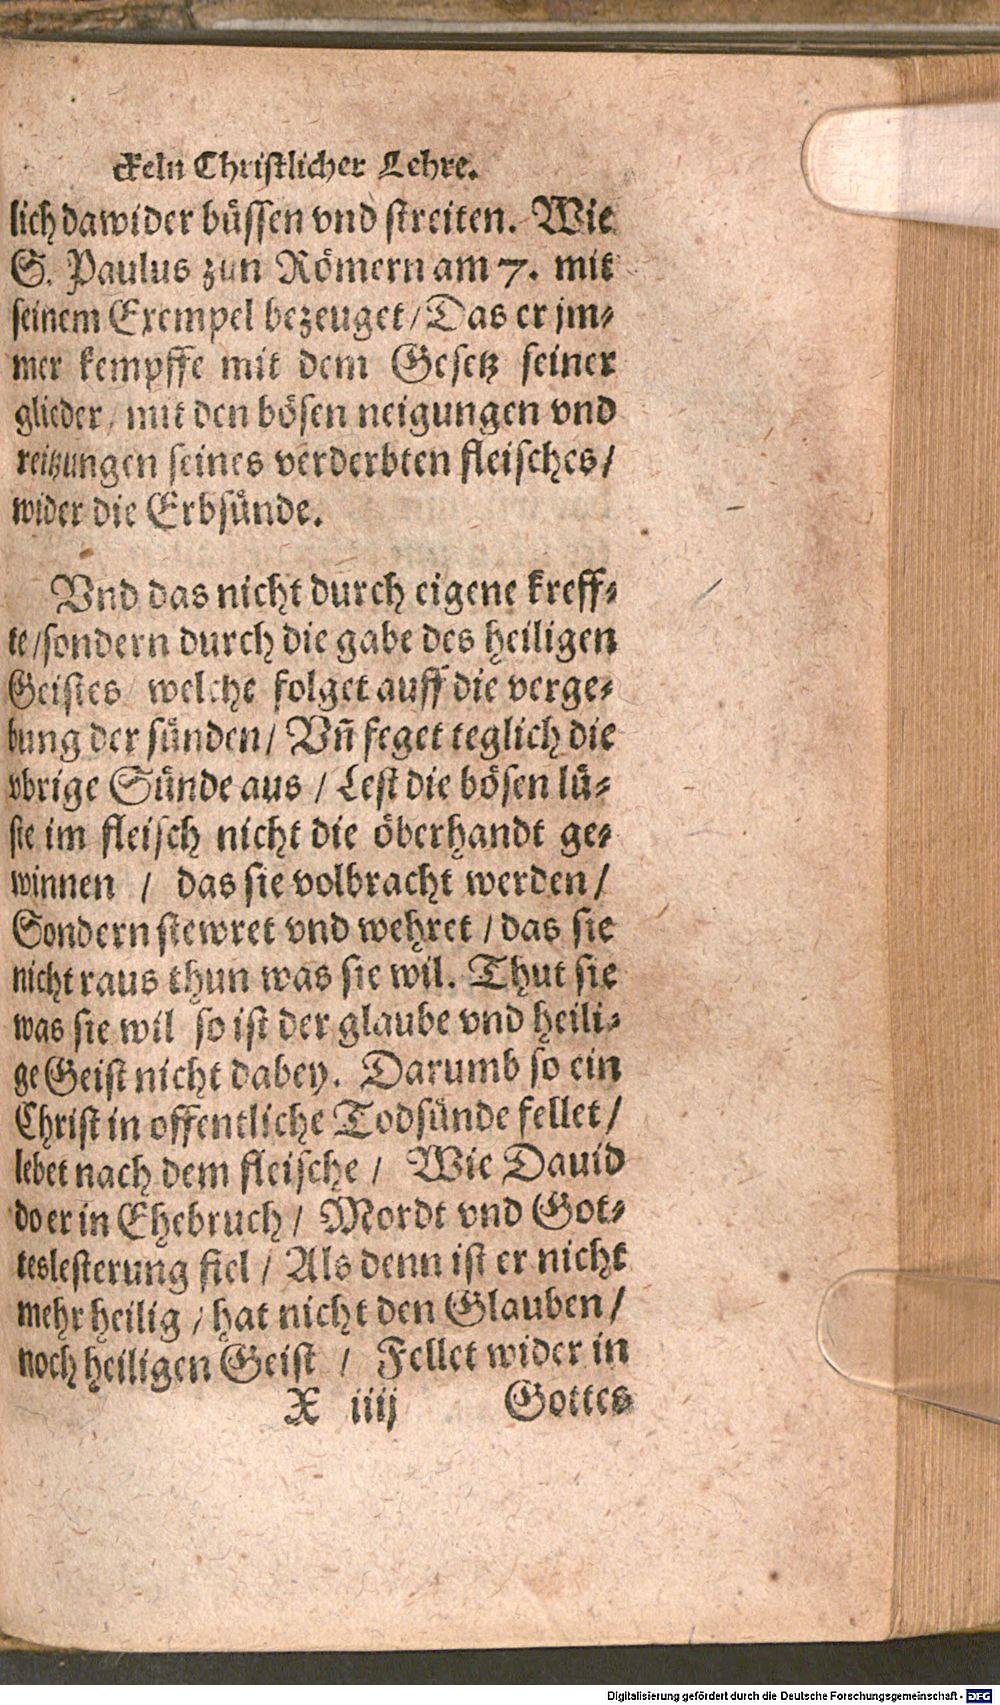 ckeln Christlicher Lehre.
lich dawider büssen vnd streiten. Wie
S. Paulus zun Römern am 7. mit
seinem Exempel bezeuget / Das er jm⸗
mer kempffe mit dem Gesetz seiner
glieder / mit den bösen neigungen vnd
reitzungen seines verderbten fleisches /
wider die Erbsünde.
Vnd das nicht durch eigene kreff⸗
te / sondern durch die gabe des heiligen
Geistes / welche folget auff die verge⸗
bung der sünden / Vñ feget teglich die
vbrige Sünde aus / Lest die bösen lü⸗
ste im fleisch nicht die öberhandt ge⸗
winnen / das sie volbracht werden /
Sondern stewret vnd wehret / das sie
nicht raus thun was sie wil. Thut sie
was sie wil so ist der glaube vnd heili⸗
ge Geist nicht dabey. Darumb so ein
Christ in offentliche Todsünde fellet /
lebet nach dem fleische / Wie Dauid
do er in Ehebruch / Mordt vnd Got⸗
teslesterung fiel / Als denn ist er nicht
mehr heilig / hat nicht den Glauben /
noch heiligen Geist / Fellet wider in
X iiij Gottes
Digitalisierung gefördert durch die Deutsche Forschungsgemeinschaft - DFG